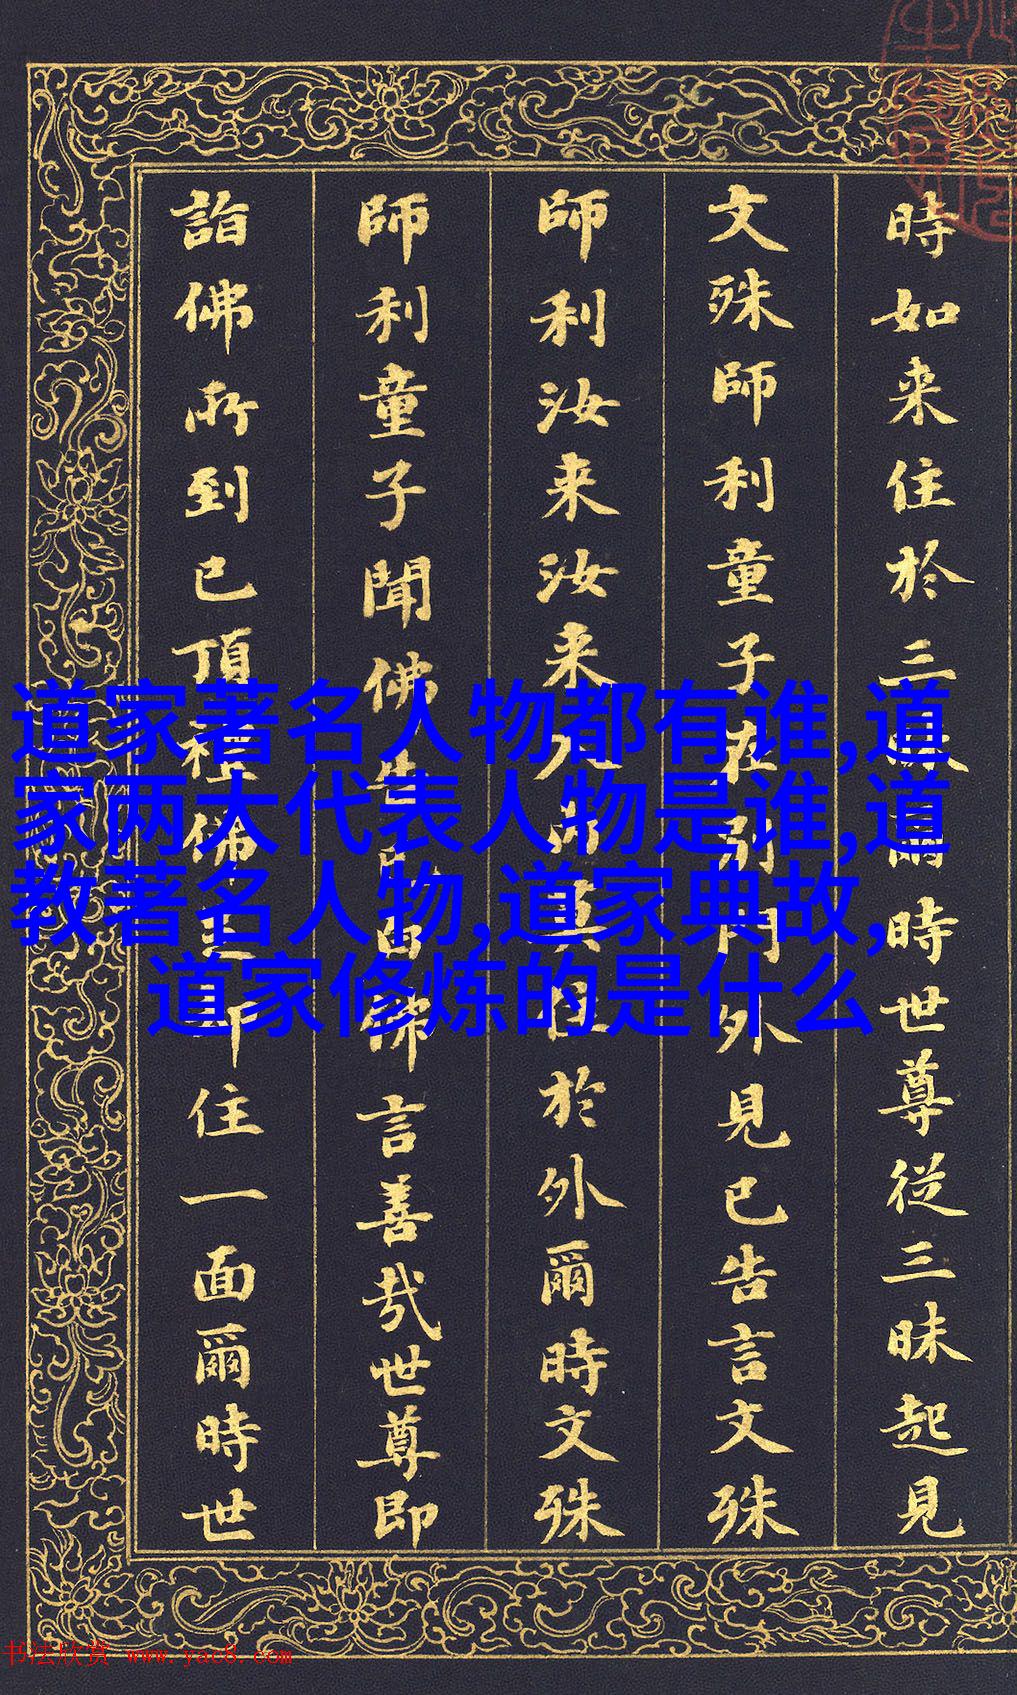 時如来住於三昧爾時世尊従三昧起見
文殊師利童子在別門外見已告言文殊
師利汝来汝来於外爾時文殊
師利童子聞佛告已白佛言善哉世尊即
詣佛所到已頂禮佛足却住一面爾時世
道家著名人物都有谁,道
家两大代表人物是谁,道
教著名人物,道家典故,
道家修炼的是什么
书法欣赏 www.yac8.com